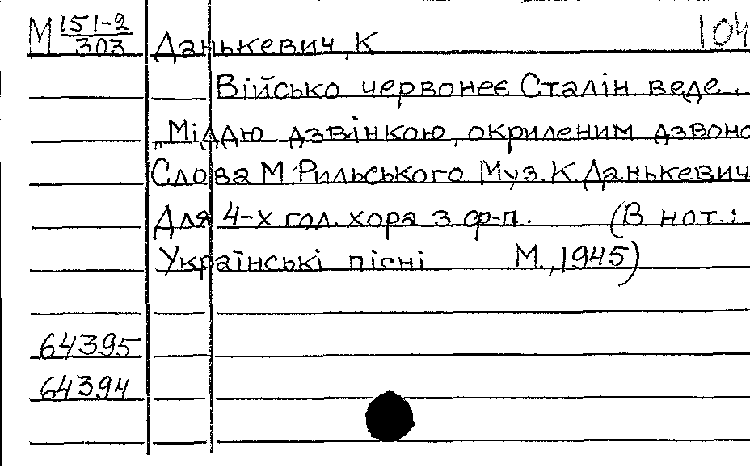 М 151-2/303 Данькевич, К 104
Військо червонеє Сталін веде.
„Міддю дзвінкою, окриленим дзвоно
Слова М. Рильського Муз. К. Данькевич
Для 4-х гол. хора з ф-п. (В нот.:
Українські пісні М., 1945)
64395
64394